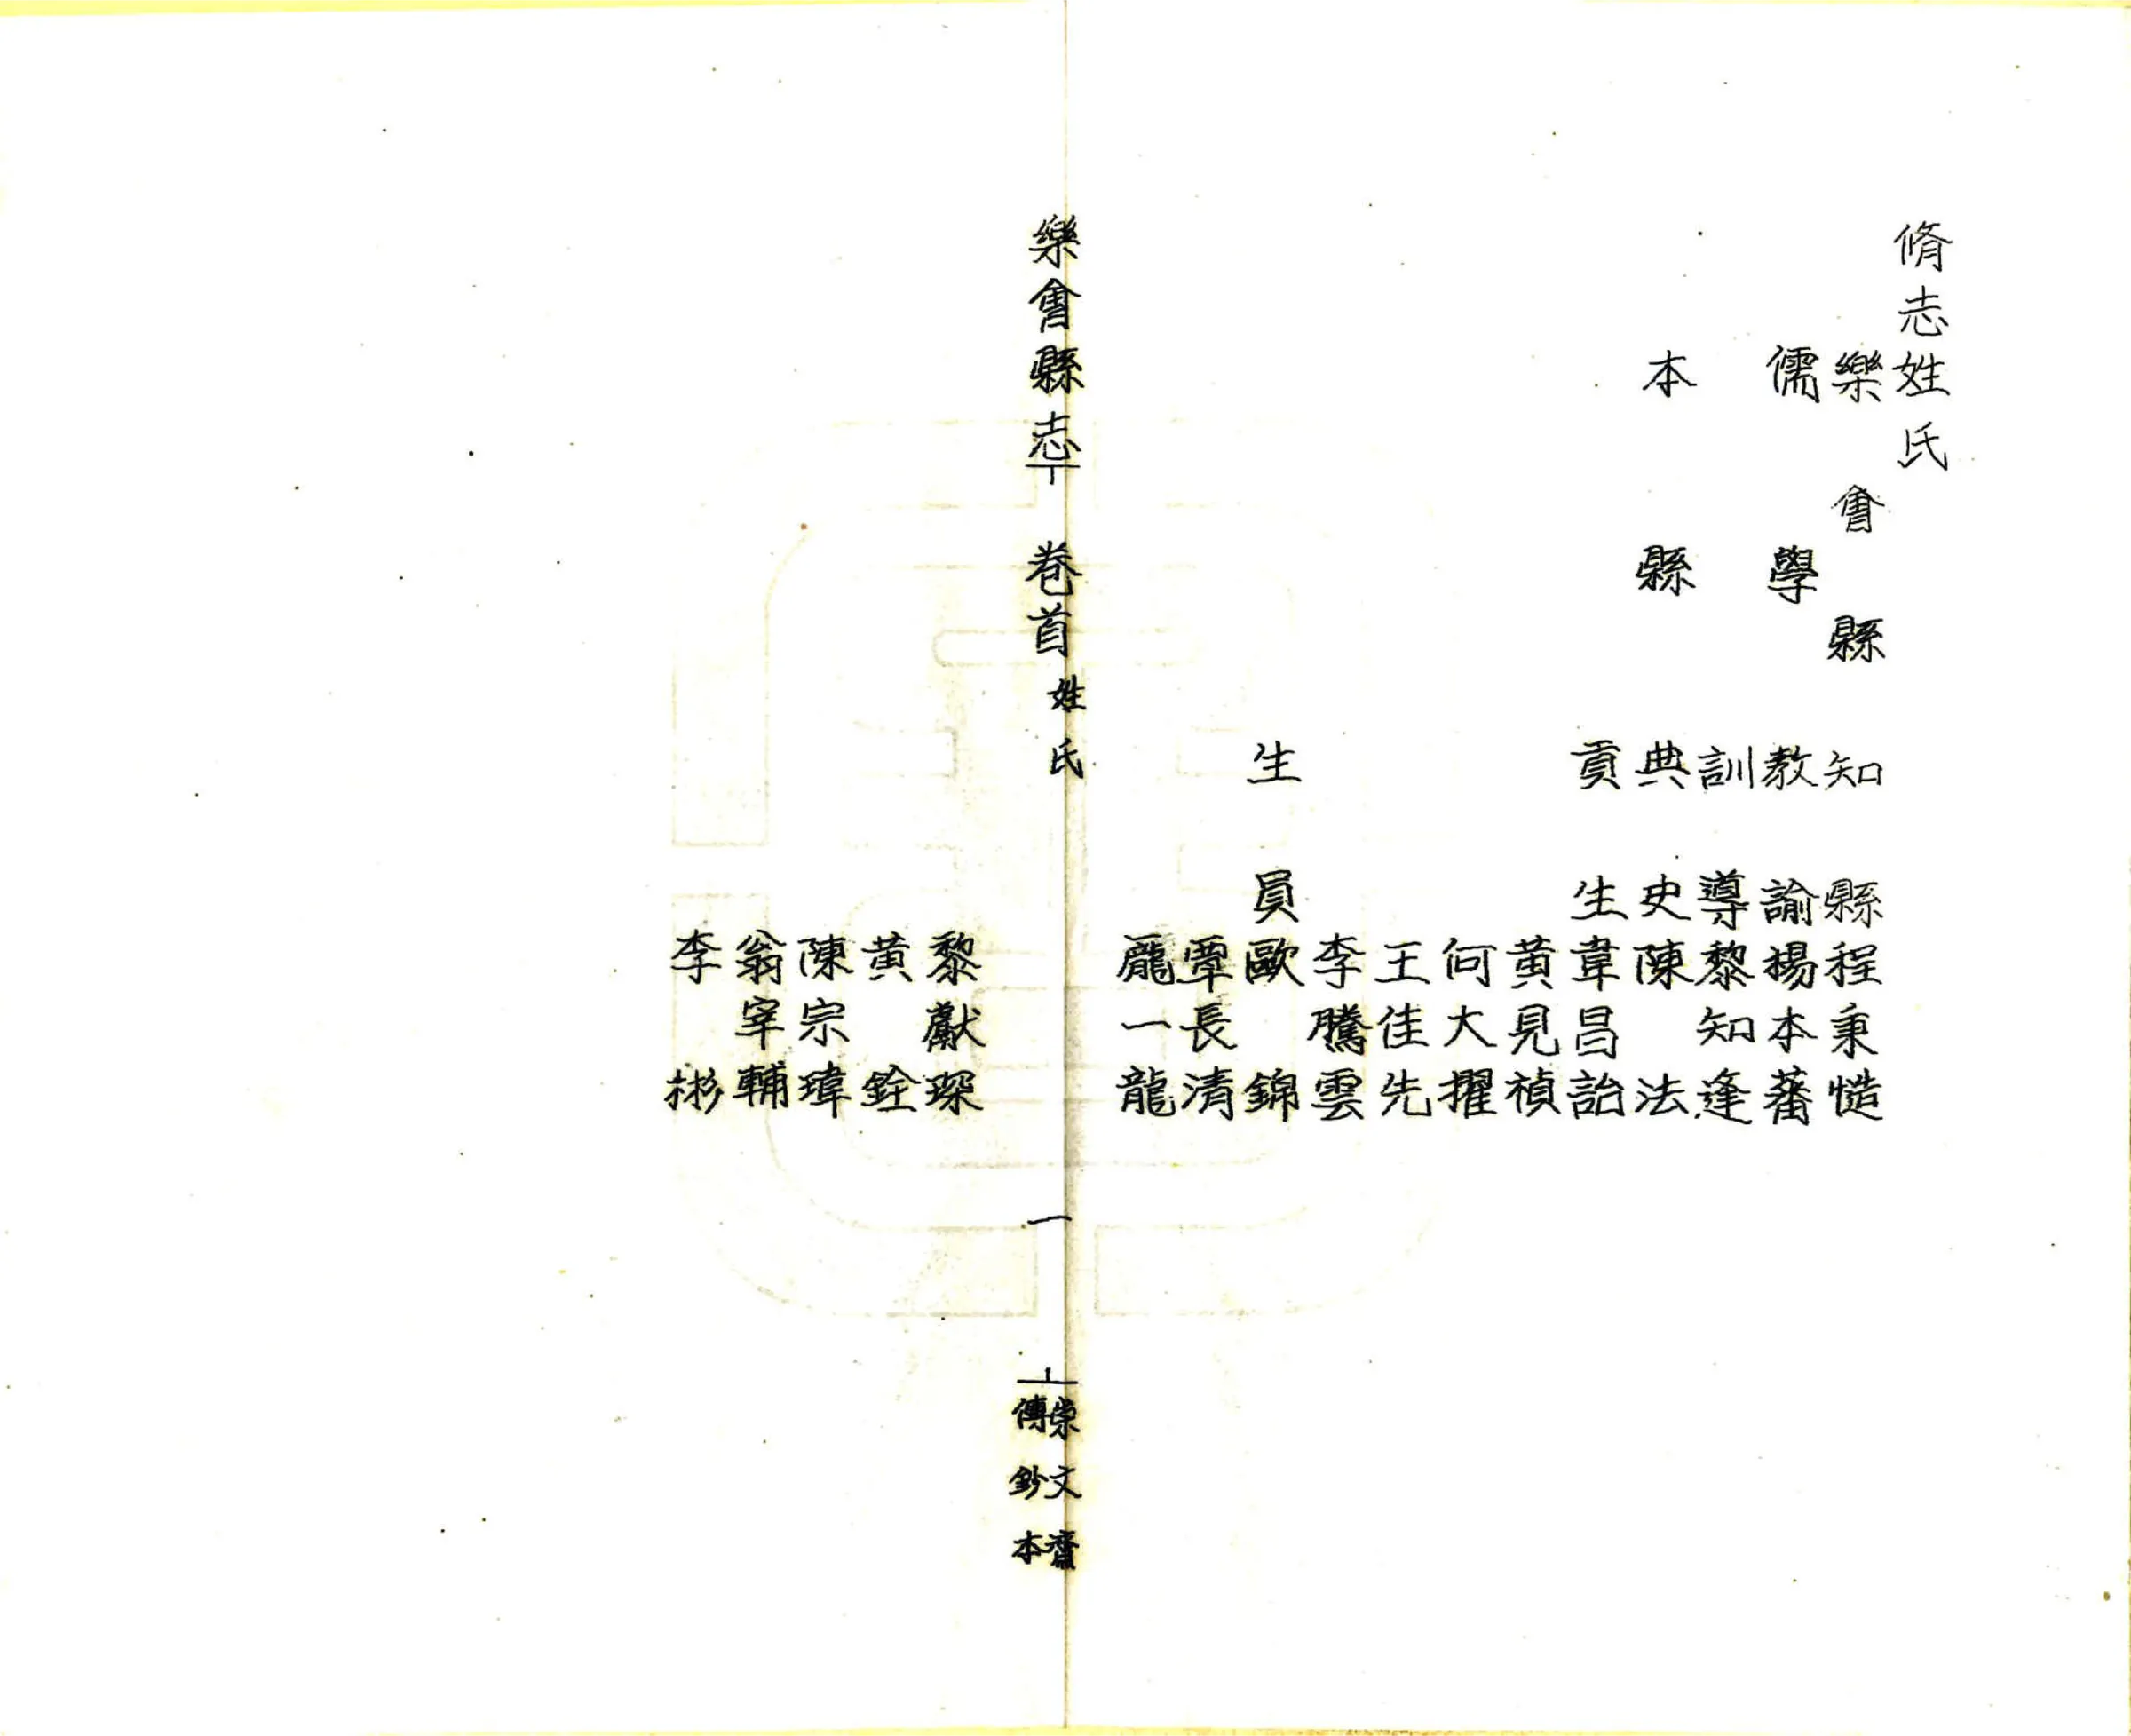 脩志姓氏
樂會縣 知縣程秉慥
儒學 教諭楊本蕃
訓導黎知逢
本縣 典史陳法
貢生韋昌詒
黃見禎
何大擢
王佳先
李騰雲
生員歐錦
覃長清
龎一龍
樂會縣志 卷首 姓氏 一 崇文齋傳鈔本
黎獻琛
黃銓
陳宗瑋
翁宰輔
李彬